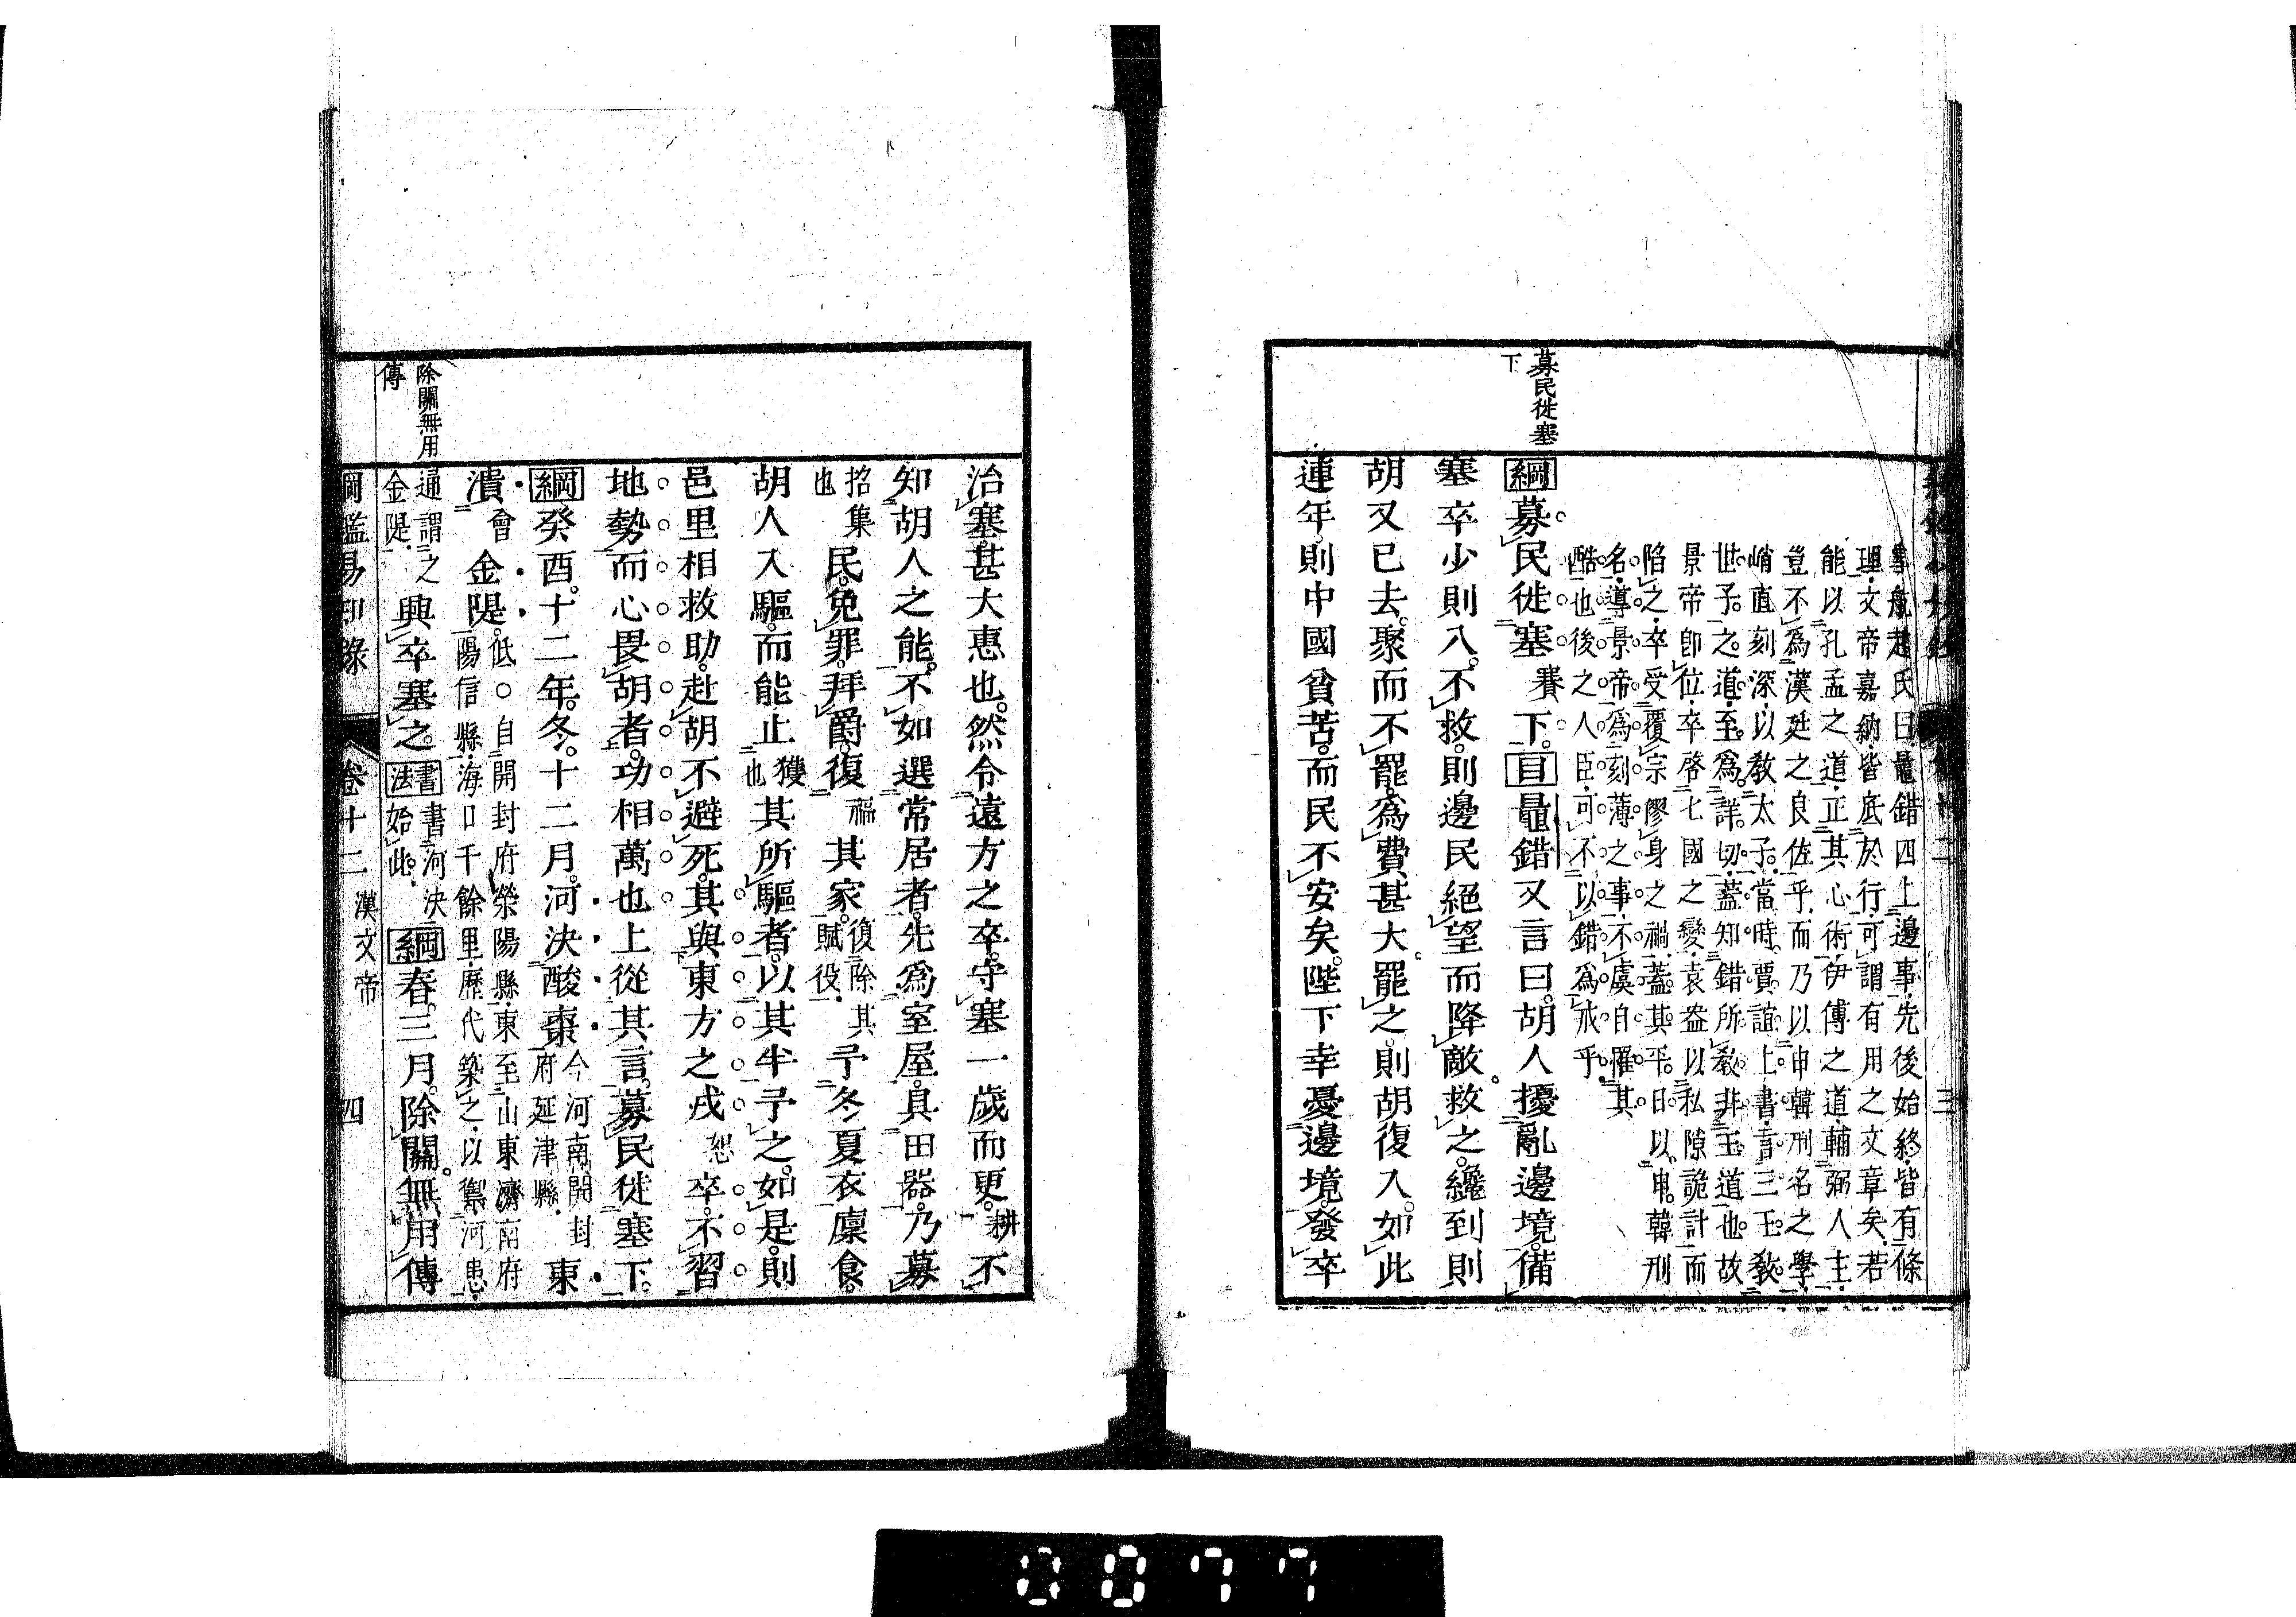 雪航趙氏曰鼂錯四上邊事先後始終皆有條
理文帝嘉納皆底於行可謂有用之文章矣若
能以孔孟之道正其心術伊傅之道輔弼人主
豈不爲漢廷之良佐乎而乃以申韓刑名之學
峭直刻深以教太子當時賈誼上書言三王教
世子之道至爲詳切蓋知錯所教非王道也故
景帝即位卒啓七國之變袁盎以私隙詭計而
陷之卒受覆宗僇身之禍蓋其平日以申韓刑
名導景帝爲刻薄之事不虞自罹其
酷也後之人臣可不以錯爲戒乎
募民徙塞
下
綱募民徙塞賽下目鼂錯又言曰胡人擾亂邊境備
塞卒少則入不救則邊民絕望而降敵救之纔到則
胡又已去聚而不罷爲費甚大罷之則胡復入如此
連年則中國貧苦而民不安矣陛下幸憂邊境發卒
治塞甚大惠也然令遠方之卒守塞一歲而更耕不
知胡人之能不如選常居者先爲室屋具田器乃募
招集也民免罪拜爵復福其家復除其賦役予冬夏衣廩食
胡人入驅而能止獲也其所驅者以其半予之如是則
邑里相救助赴胡不避死其與東方之戍恕卒不習
地勢而心畏胡者功相萬也上從其言募民徙塞下
綱癸酉十二年冬十二月河決酸棗今河南開封府延津縣東
潰會金隄低○自開封府滎陽縣東至山東濟南府陽信縣海口千餘里歷代築之以禦河患
除關無用
傳
通謂之金隄興卒塞之書法書河決始此綱春三月除關無用傳
綱鑑易知錄 卷十二 漢文帝 四